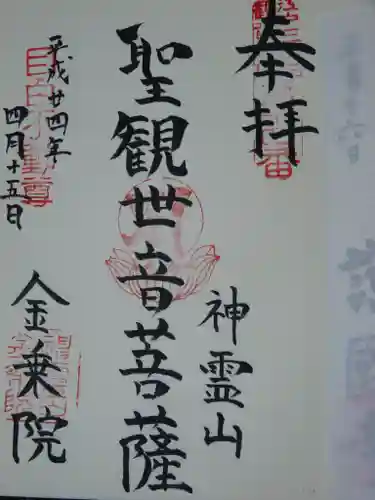 奉拝
聖観世音菩薩
神霊山
金乗院
平成廿四年
四月十五日
目白不動尊